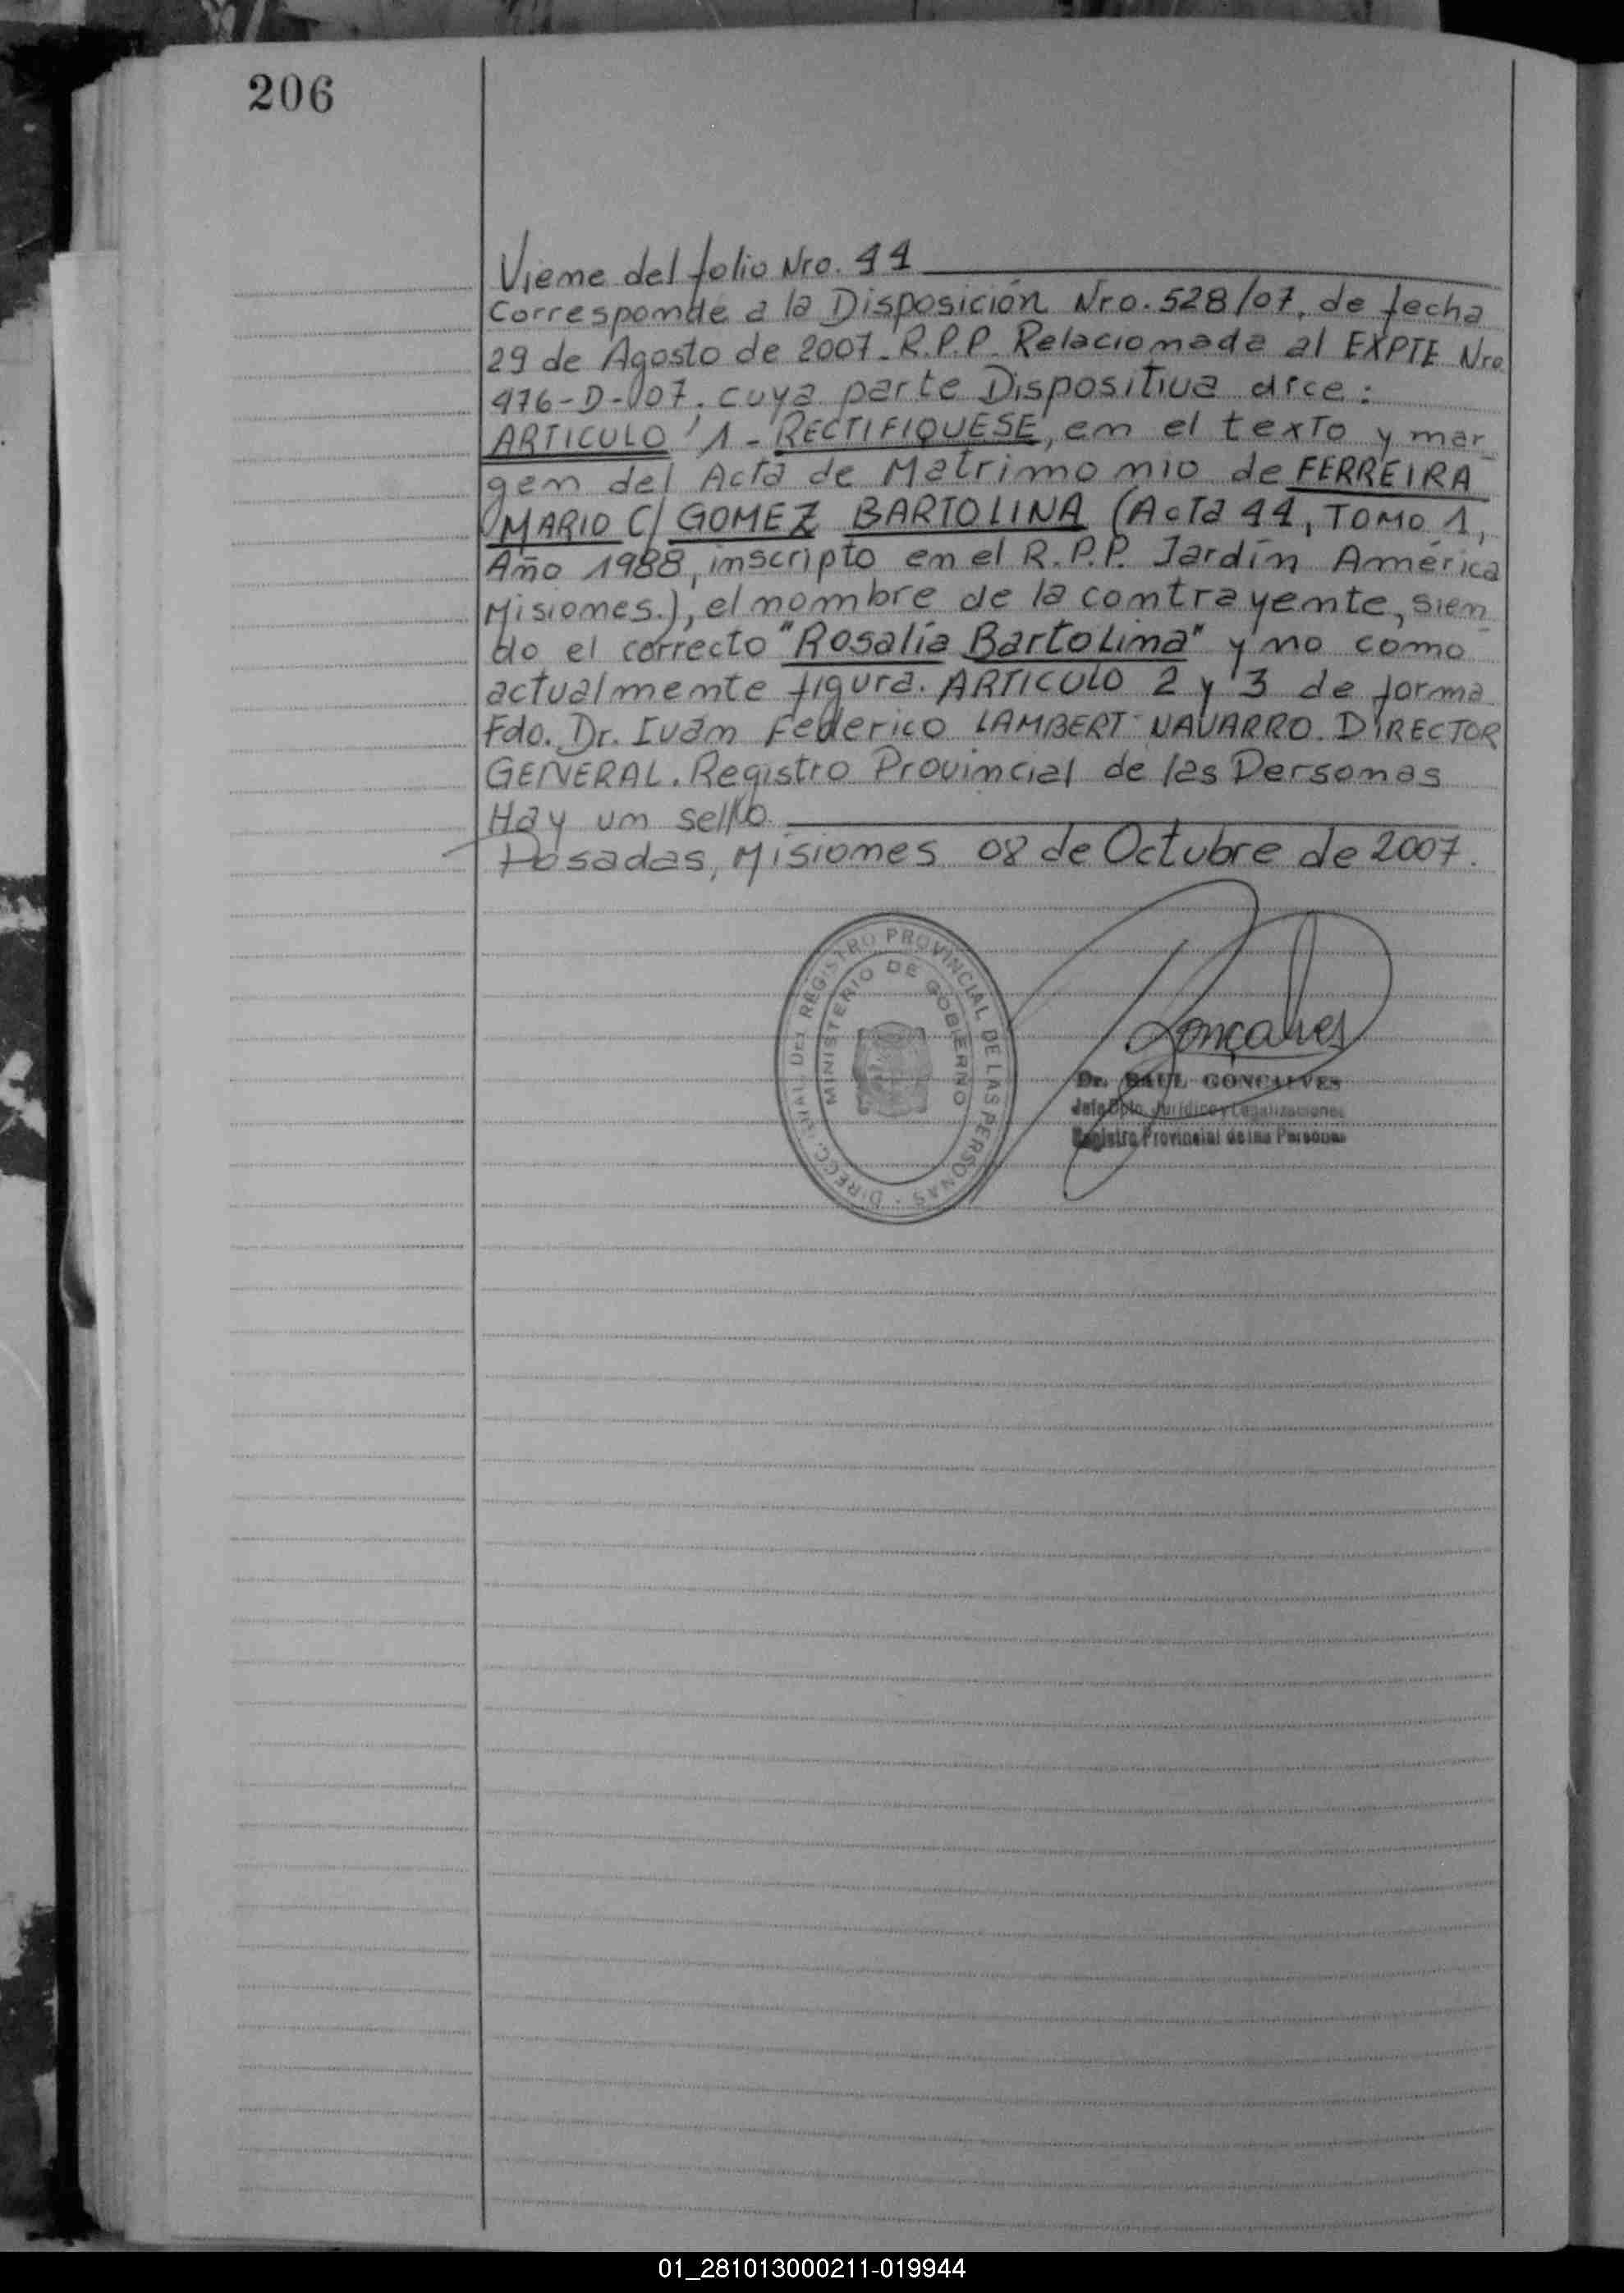 206
Viene del folio Nro. 44
Corresponde a la Disposición Nro. 528/07, de fecha
29 de Agosto de 2007. R.P.P. Relacionada al EXPTE Nro
476-D-07. cuya parte Dispositiva dice:
ARTICULO 1 - RECTIFIQUESE, en el texto y mar
gen del Acta de Matrimonio de FERREIRA
MARIO C/ GOMEZ BARTOLINA (Acta 44, TOMO 1,
Año 1988, inscripto en el R.P.P. Jardín América
Misiones.), el nombre de la contrayente, sien
do el correcto "Rosalía Bartolina" y no como
actualmente figura. ARTICULO 2 y 3 de forma
Fdo. Dr. Iván Federico LAMBERT NAVARRO. DIRECTOR
GENERAL. Registro Provincial de las Personas
Hay un sello.
Posadas, Misiones 08 de Octubre de 2007.
DIRECC. GRAL. DEL REGISTRO PROVINCIAL DE LAS PERSONAS
MINISTERIO DE GOBIERNO
Goncalves
Dr. RAUL GONCALVES
Jefe Dpto. Jurídico y Legalizaciones
Registro Provincial de las Personas
01_281013000211-019944